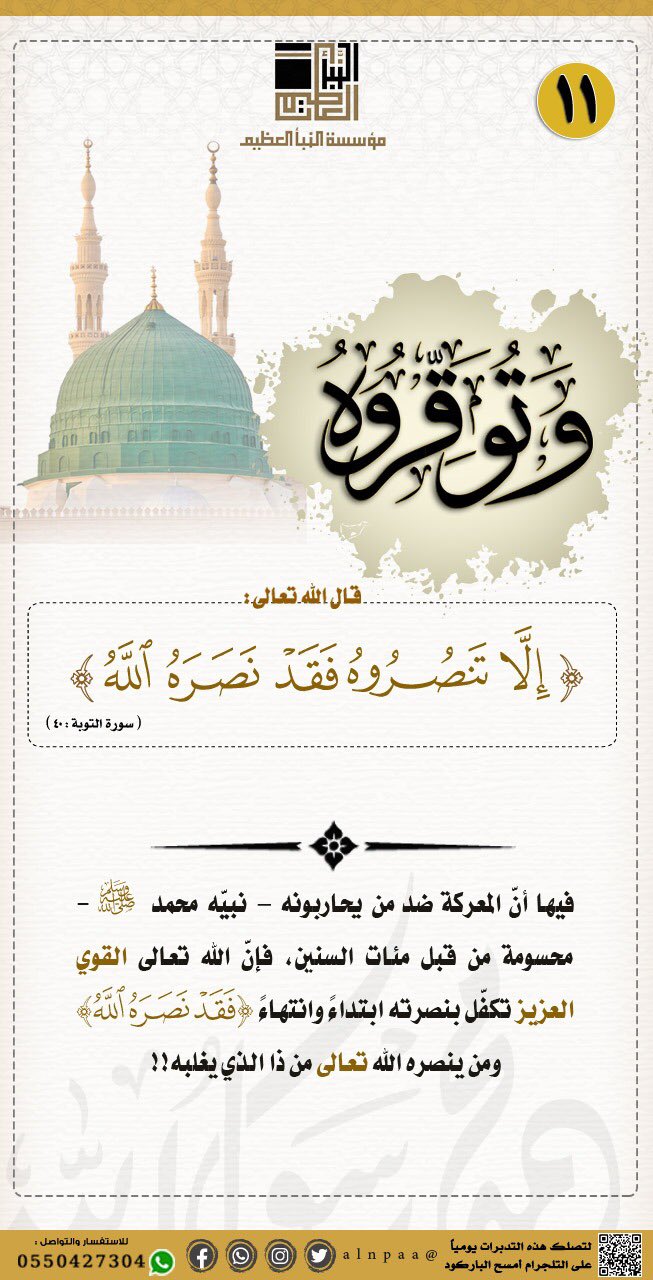 النبأ العظيم
مؤسسة النبأ العظيم
١١
وَتُوَقِّرُوهُ
قال الله تعالى:
﴿ إِلَّا تَنصُرُوهُ فَقَدْ نَصَرَهُ ٱللَّهُ ﴾
( سورة التوبة : ٤٠ )
فيها أنّ المعركة ضد من يحاربونه – نبيّه محمد ﷺ –
محسومة من قبل مئات السنين، فإنّ الله تعالى القوي
العزيز تكفّل بنصرته ابتداءً وانتهاءً ﴿فَقَدْ نَصَرَهُ ٱللَّهُ﴾
ومن ينصره الله تعالى من ذا الذي يغلبه!!
لتصلك هذه التدبرات يومياً
على التلجرام امسح الباركود
@alnpaa
للاستفسار والتواصل :
0550427304